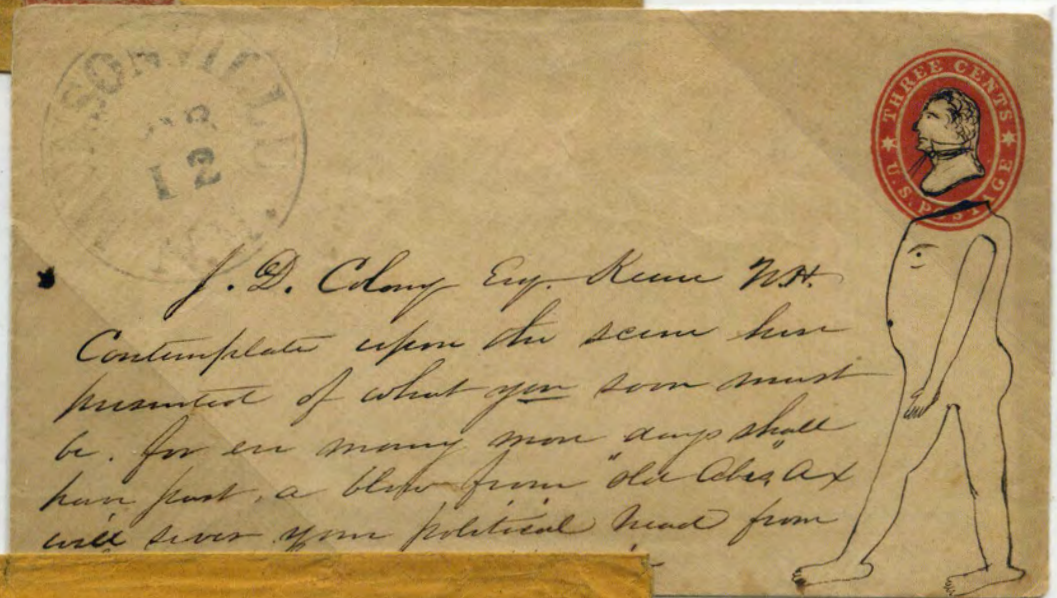 12
THREE CENTS
U.S. POSTAGE
J. D. Colony Esq. Keene N.H.
Contemplate upon the scene here
presented of what you soon must
be. for ere many more days shall
have past, a blow from "old Abes" Ax
will sever your political head from